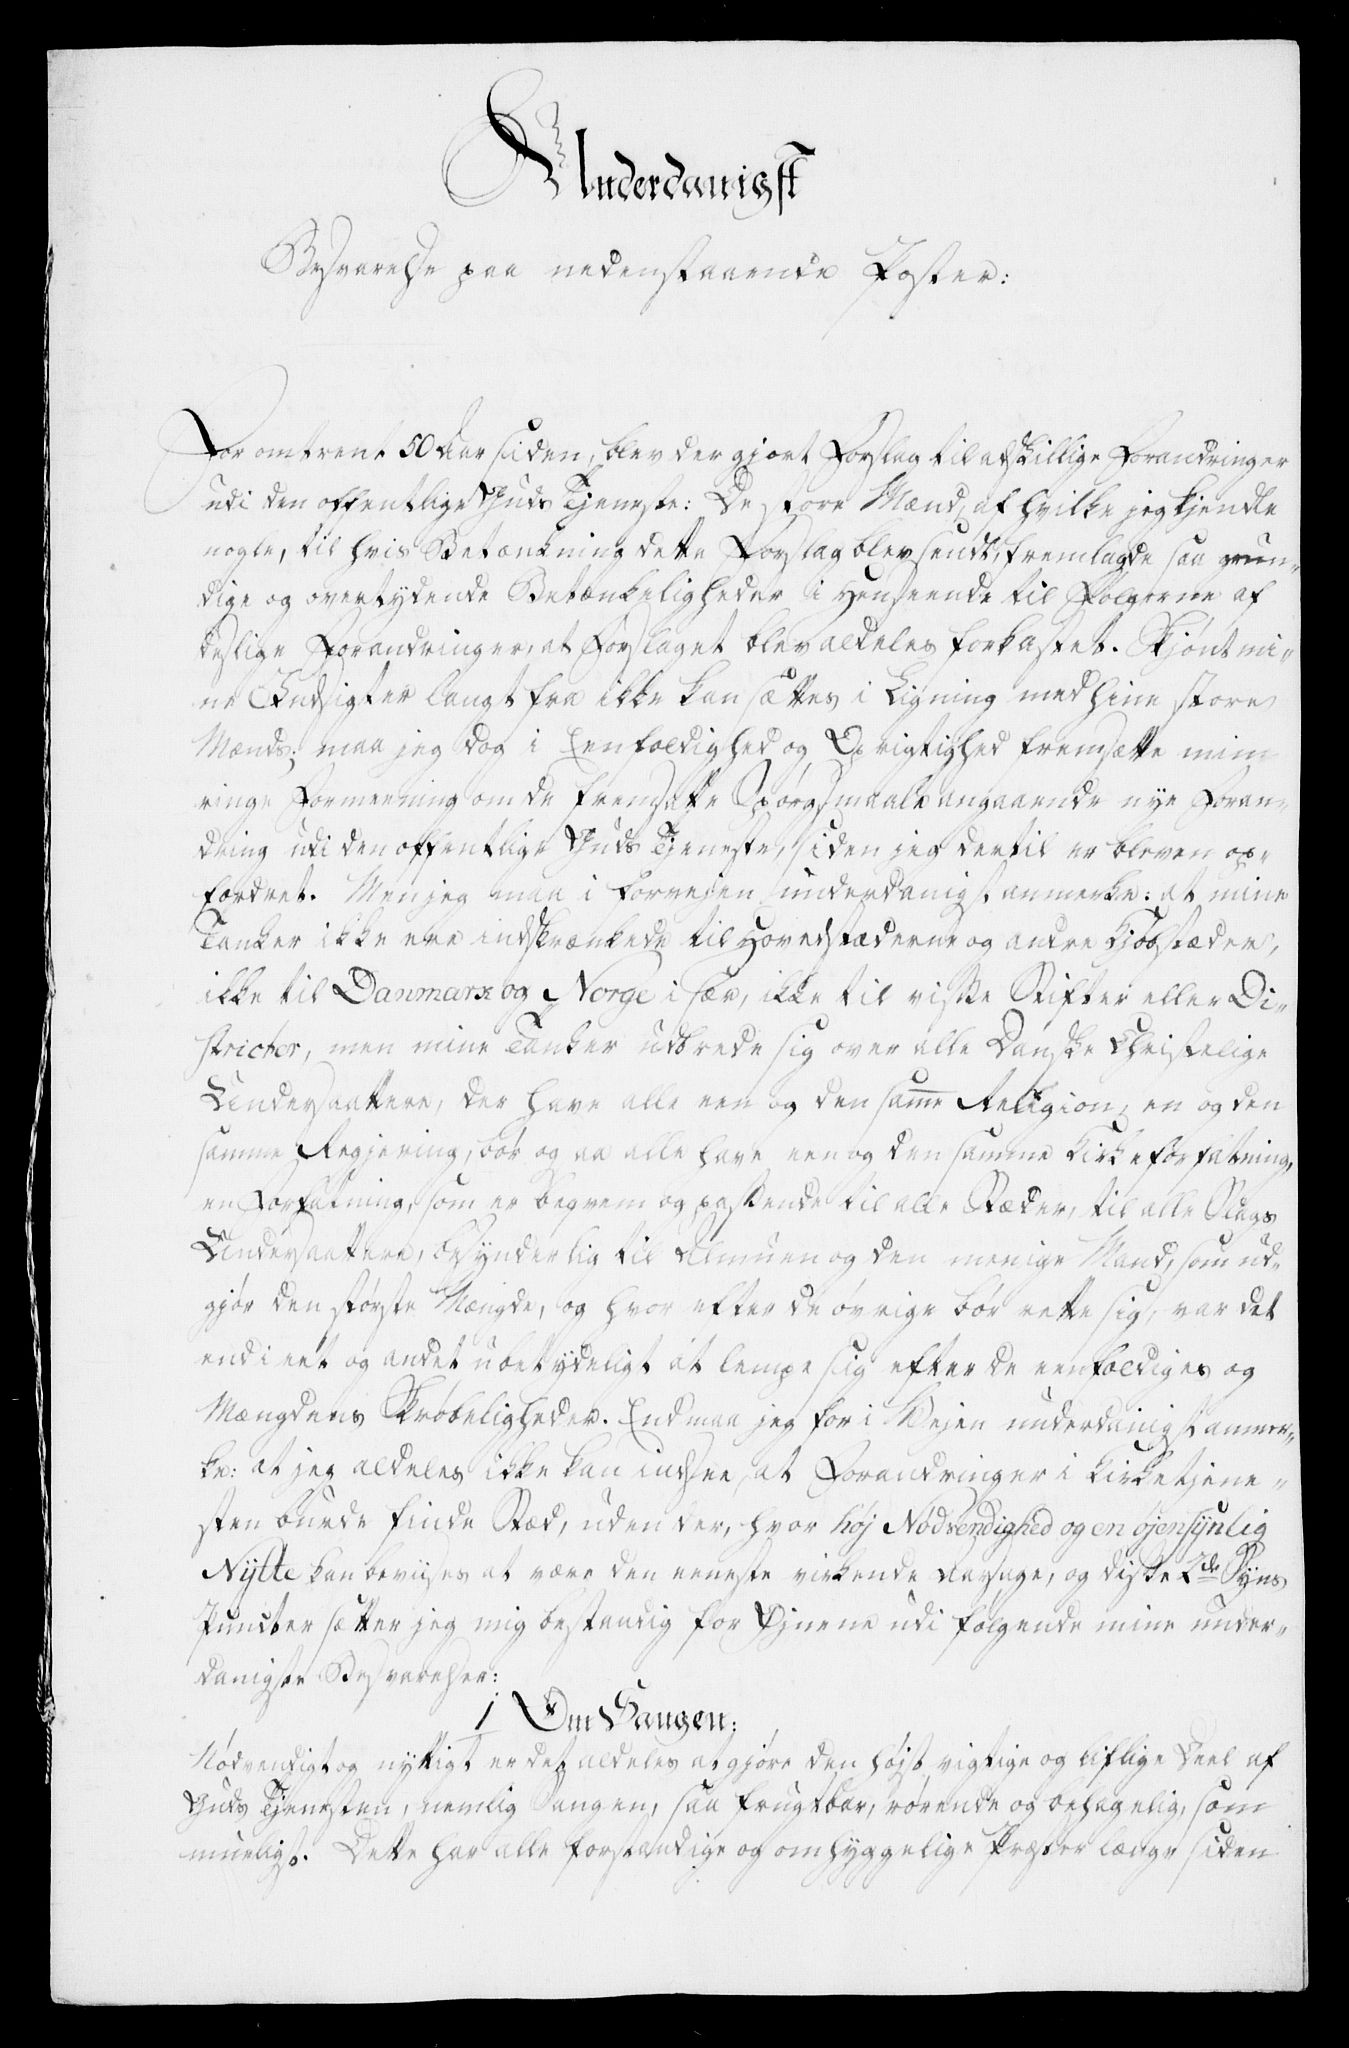 Underdanigst
Besvarelse paa nedenstaaende Poster:
For omtrent 50 Aar siden, blev der gjort Forslag til adskillige Forandringer
udi den offentlige Guds Tjeneste: De store Mænd, af hvilke jeg kjendte
nogle, til hvis Betænkning dette Forslag blev sendt, fremlagde saa grun„
dige og overtydende Betænkeligheder i Henseende til Følgerne af
deslige Forandringer, at Forslaget blev aldeles forkastet. Skjønt mi„
ne Indsigter langt fra ikke kan sættes i Ligning med hine store
Mænds; maa jeg dog i Eenfoldighed og Oprigtighed fremsætte min
ringe Formeening om de fremsatte Spørgsmaale angaaende nye Foran„
dring udi den offentlige Guds Tjeneste, siden jeg dertil er bleven op„
fordret. Men jeg maa i forvejen underdanigst anmerke: at mine
Tanker ikke ere indskrænkede til Hovedstæderne og andre Kjøbstæder,
ikke til Danmark og Norge i sær, ikke til visse Stifter eller Di„
stricter, men mine Tanker udbrede sig over alle Danske Christelige
Undersaattere, der have alle een og den samme Religion, en og den
samme Regjering, bør og aa alle have een og den samme Kirkeforfatning,
en Forfatning, som er beqvem og passende til alle Stæder, til alle Slags
Undersaattere, besynderlig til Almuen og den menige Mand, som ud„
gjør den største Mængde, og hvorefter de øvrige bør rette sig, var det
end i eet og andet ubetydeligt at lempe sig efter de eenfoldiges og
Mængdens Skrøbeligheder. End maa jeg for i Vejen underdanigst anmer„
ke: at jeg aldeles ikke kan indsee, at Forandringer i Kirketjene„
sten burde finde Sted, uden der, hvor høj Nødvendighed og en øjensynlig
Nytte kan bevises at være den eeneste virkende Aarsage, og disse 2de Syns
Puncter sætter jeg mig bestandig for Øjnene udi følgende mine under„
danigste Besvarelser:
1 Om Sangen:
Nødvendigt og nyttigt er det aldeles at gjøre den højst vigtige og liflige Deel af
Guds Tjenesten, nemlig Sangen, saa frugtbar, rørende og behagelig, som
mueligt. Dette har alle forstandige og omhyggelige Præster længe siden